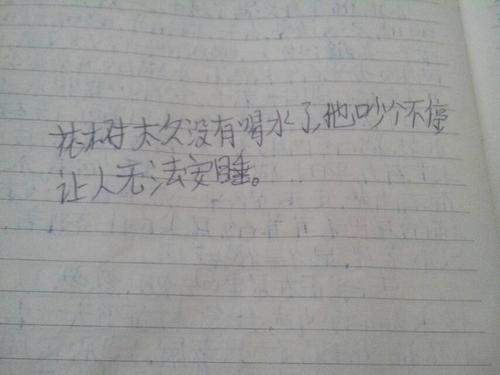 花树太久没有喝水了,他吵个不停
让人无法安睡。